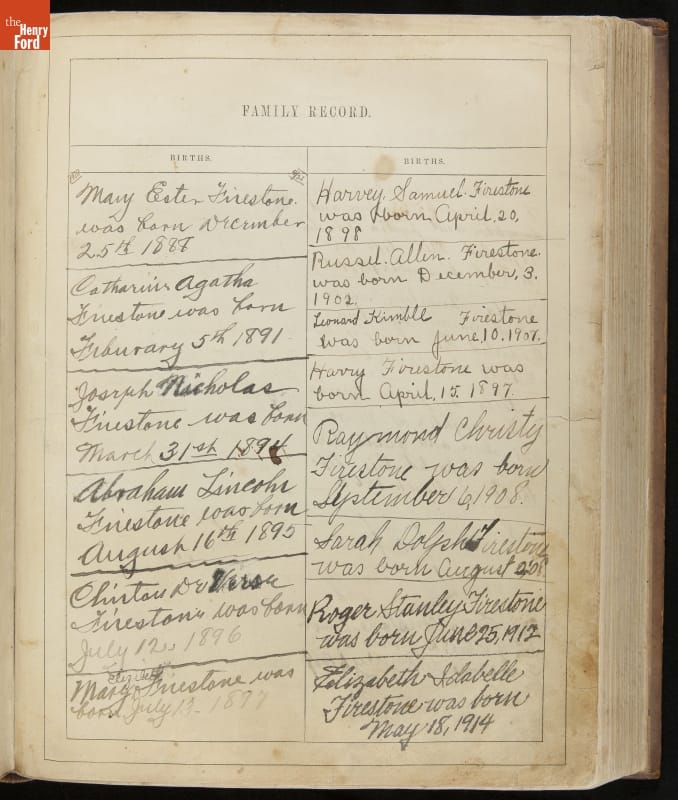 the
Henry
Ford
FAMILY RECORD.
BIRTHS.
Mary Ester Firestone.
was born December
25th 1887
Catharine Agatha
Firestone was born
Feburary 5th 1891
Joseph Nicholas
Firestone was born
March 31st 1894
Abraham Lincoln
Firestone was born
August 16th 1895
Clinton
Firestone was born
July 12. 1896
Mary Elizabeth Firestone was
born July 13. 1897
BIRTHS.
Harvey. Samuel. Firestone
was born April, 20,
1898
Russel. Allen. Firestone.
was born December, 3.
1902.
Leonard Kimble Firestone
was born June, 10. 1907.
Harry Firestone was
born April, 15. 1897.
Raymond Christy
Firestone was born
September 6, 1908.
Sarah Dolph Firestone
was born August
Roger Stanley Firestone
was born June 25, 1912
Elizabeth Idabelle
Firestone was born
May 18, 1914